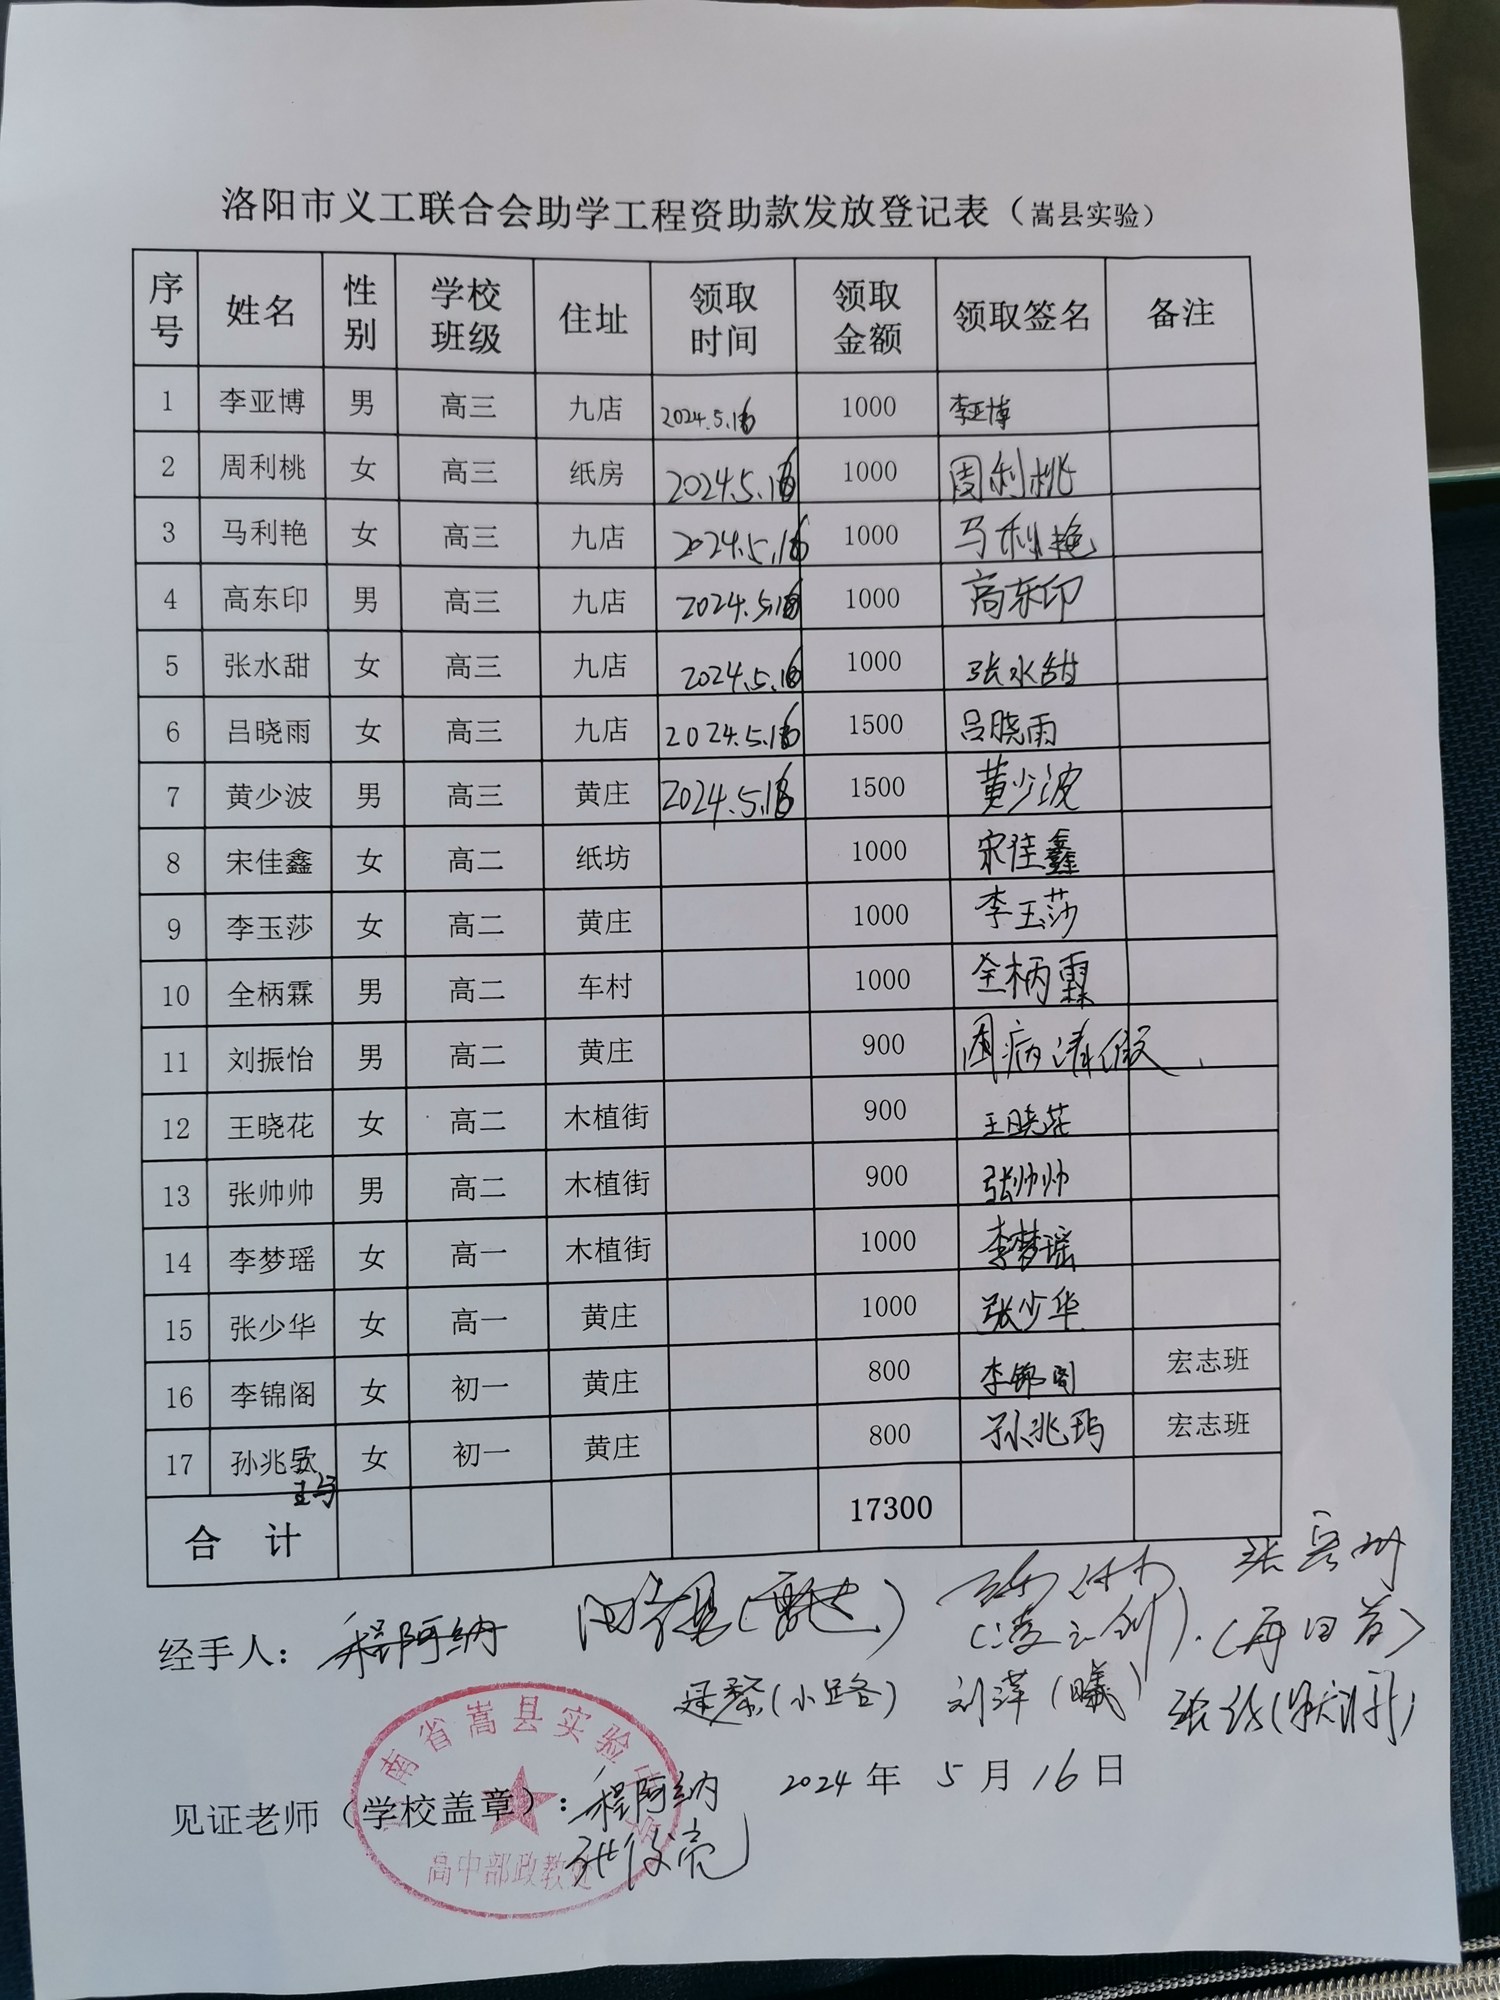 洛阳市义工联合会助学工程资助款发放登记表（嵩县实验）
序号 姓名 性别 学校班级 住址 领取时间 领取金额 领取签名 备注
1 李亚博 男 高三 九店 2024.5.16 1000 李亚博
2 周利桃 女 高三 纸房 2024.5.16 1000 周利桃
3 马利艳 女 高三 九店 2024.5.16 1000 马利艳
4 高东印 男 高三 九店 2024.5.16 1000 高东印
5 张水甜 女 高三 九店 2024.5.16 1000 张水甜
6 吕晓雨 女 高三 九店 2024.5.16 1500 吕晓雨
7 黄少波 男 高三 黄庄 2024.5.16 1500 黄少波
8 宋佳鑫 女 高二 纸坊 1000 宋佳鑫
9 李玉莎 女 高二 黄庄 1000 李玉莎
10 全柄霖 男 高二 车村 1000 全柄霖
11 刘振怡 男 高二 黄庄 900 因病请假
12 王晓花 女 高二 木植街 900 王晓花
13 张帅帅 男 高二 木植街 900 张帅帅
14 李梦瑶 女 高一 木植街 1000 李梦瑶
15 张少华 女 高一 黄庄 1000 张少华
16 李锦阁 女 初一 黄庄 800 李锦阁 宏志班
17 孙兆玙 女 初一 黄庄 800 孙兆玙 宏志班
合 计 17300
经手人：程阿纳
（小路） 刘萍（曦）
见证老师（学校盖章）：程阿纳 2024年5月16日
张俊亮
河南省嵩县实验中学
高中部政教处